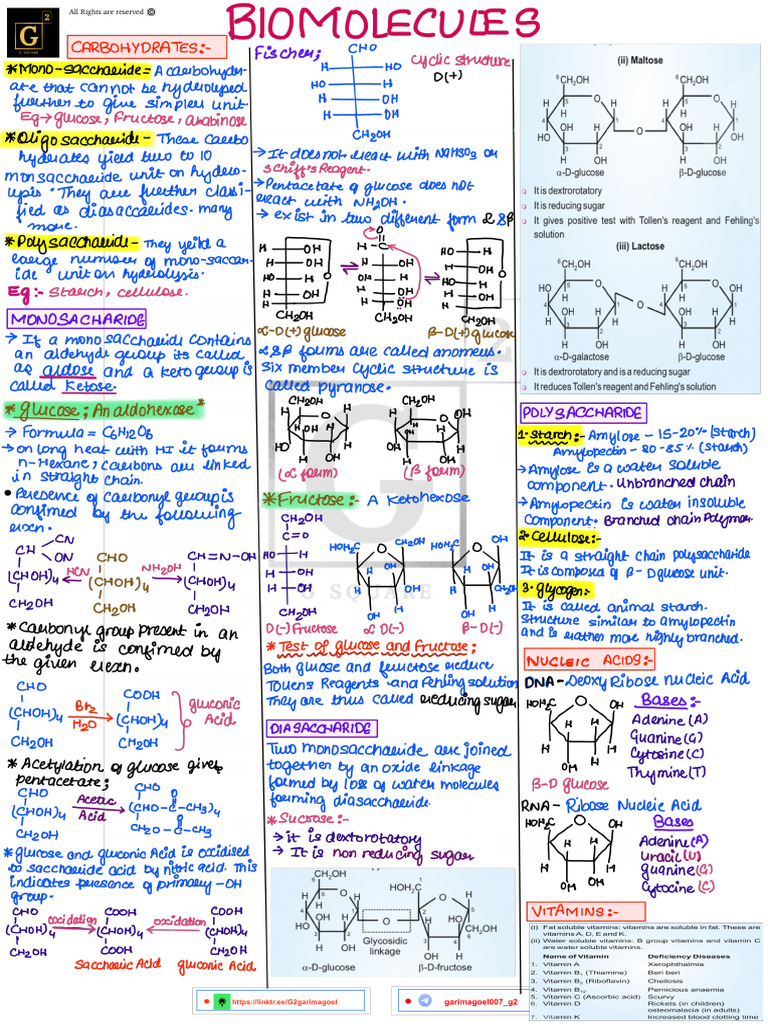 All Rights are reserved ©
G 2
G SQUARE
BIOMOLECULES
CARBOHYDRATES:-
*Mono-saccharide = A carbohydr-
ate that cannot be hydrolysed
further to give simpler unit.
Eg → glucose, Fructose, arabinose
*Oligosaccharide - These carbo
hydrates yield two to 10
monsaccharide unit on hydro-
lysis. They are further classi-
fied as diasaccaides. many
more.
*Polysaccharide - They yeild a
large number of mono-saccar-
ide unit on hydrolysis.
Eg:- Starch, cellulose.
MONOSACHARIDE
→ If a mono saccharide contains
an aldehyde group its called
as aldose and a keto group is
called Ketose.
*glucose; An aldohexose*
→ Formula = C6H12O6
→ on long heat with HI it forms
n-Hexane, carbons are linked
in straight chain.
• Presence of carbonyl group is
confirmed by the following
rxn.
CH CN
OH
(CHOH)4
CH2OH
HCN
CHO
(CHOH)4
CH2OH
NH2OH
CH=N-OH
(CHOH)4
CH2OH
* Carbonyl group present in an
aldehyde is confirmed by
the given rxn.
CHO
(CHOH)4
CH2OH
Br2
H2O
COOH
(CHOH)4
CH2OH
gluconic
Acid
* Acetylation of glucose gives
pentacetate;
CHO
(CHOH)4
CH2OH
Acetic
Acid
CHO O
(CHO-C-CH3)4
CH2O-C-CH3
O
*glucose and gluconic Acid is oxidised
to saccharic acid by nitric acid. This
indicates presence of primary -OH
group.
CHO
(CHOH)4
CH2OH
oxidation
COOH
(CHOH)4
COOH
oxidation
COOH
(CHOH)4
CH2OH
Saccharic Acid gluconic Acid
Fischer;
CHO
H HO
HO H
H OH
H OH
CH2OH
cyclic structure
D(+)
→ It does not react with NaHSO3 or
schiff's Reagent.
→ Pentacetate of glucose does not
react with NH2OH.
→ exist in two different form α & β
H OH
H OH
HO H
H OH
H
CH2OH
O
O
H-C
H OH
OH H
H OH
H OH
CH2OH
HO H
H OH
HO H
H OH
H
CH2OH
O
α-D(+) glucose β-D(+) glucose
α & β forms are called anomers.
Six member cyclic structure is
called pyranose.
CH2OH
(α form)
CH2OH
(β form)
*Fructose:- A Ketohexose
CH2OH
C=O
HO H
H OH
H OH
CH2OH
HOH2C O CH2OH
OH
OH
HOH2C O OH
OH
CH2OH
OH
D(-) Fructose α D(-) β-D(-)
* Test of glucose and Fructose;
Both glucose and fructose reduce
Tollen's Reagents and Fehling solution
They are thus called reducing sugar
DIASACCHARIDE
Two monosaccharide are joined
together by an oxide linkage
formed by loss of water molecules
forming diasaccharide.
* Sucrose:-
→ it is dextorotatory
→ It is non reducing sugar
6CH2OH
HOH2C
CH2OH
Glycosidic
linkage
α-D-glucose β-D-fructose
https://linktr.ee/G2garimagoel
garimagoel007_g2
(ii) Maltose
6CH2OH 6CH2OH
α-D-glucose β-D-glucose
It is dextrorotatory
It is reducing sugar
It gives positive test with Tollen's reagent and Fehling's
solution
(iii) Lactose
6CH2OH 6CH2OH
α-D-galactose β-D-glucose
It is dextrorotatory and is a reducing sugar
It reduces Tollen's reagent and Fehling's solution
POLYSACCHARIDE
1- Starch:- Amylose - 15-20% (starch)
Amylopectin - 80-85% (starch)
→ Amylose is a water soluble
component. Unbranched chain
→ Amylopectin is water insoluble
Component. Branched chain Polymer
2- Cellulose:-
It is a straight chain polysaccharide
It is composed of β- D glucose unit.
3- glycogen:-
It is called animal starch.
Structure similar to amylopectin
and is rather more highly branched.
NUCLEIC ACIDS:-
DNA - Deoxy Ribose nucleic Acid
HOH2C O OH
OH
β-D glucose
Bases:-
Adenine (A)
Guanine (G)
Cytosine (C)
Thymine (T)
RNA - Ribose Nucleic Acid
HOH2C O OH
OH OH
Bases
Adenine (A)
Uracil (U)
Guanine (G)
Cytocine (C)
VITAMINS:-
(i) Fat soluble vitamins: vitamins are soluble in fat. These are
vitamins A, D, E and K.
(ii) Water soluble vitamins: B group vitamins and vitamin C
are water soluble vitamins.
Name of Vitamin Deficiency Diseases
1. Vitamin A Xerophthalmia
2. Vitamin B1 (Thiamine) Beri beri
3. Vitamin B2 (Riboflavin) Cheilosis
4. Vitamin B12 Pernicious anaemia
5. Vitamin C (Ascorbic acid) Scurvy
6. Vitamin D Rickets (in children)
osteomalacia (in adults)
7. Vitamin K Increased blood clotting time
G SQUARE